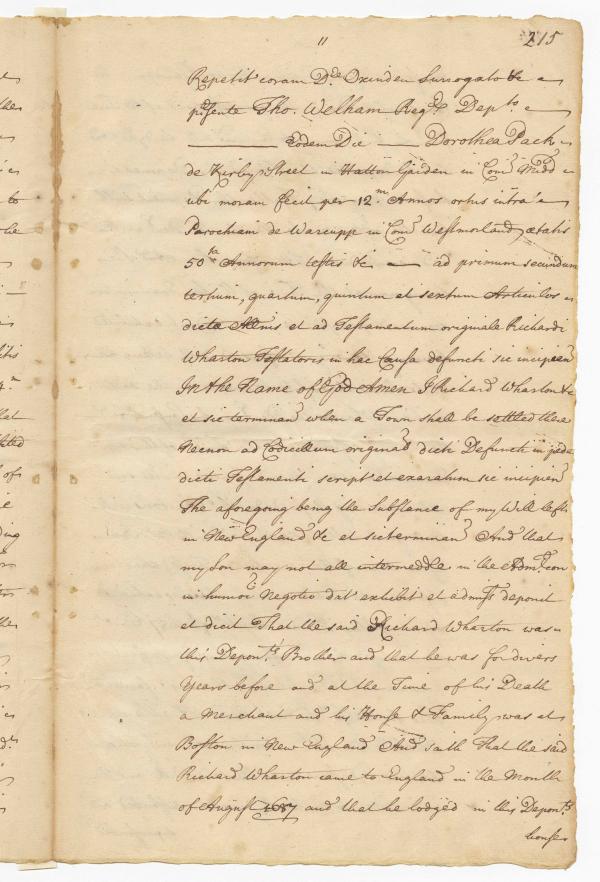 11
215
Repetit coram Dre Oxinden Surrogato &c
p̄sente Tho. Welham Regrij Depto
Eodem Die Dorothea Pack
de Kirby Street in Hatton Garden in Com Midd
ubi moram fecit per 12m Annos ortus intra
Parochiam de Warcupp in Com Westmorland ætatis
50ta Annorum testis &c ad primum secundum
tertium, quartum, quintum et sextum Articulos
dictæ Allnis et ad Testamentum originale Richardi
Wharton Testatoris in hac Causa defuncti sic incipien
In the Name of God Amen I Richard Wharton &c
et sic terminan when a Town shall be settled there
Necnon ad Codicillum original dicti Defuncti in pede
dicti Testamenti script et exaratum sic incipien
The aforegoing being the Substance of my Will left
in New England &c et sic terminan And that
my Son may not all intermeddle in the Admcon
in humoi Negotio dat exhibit et admiss deponit
et dicit That the said Richard Wharton was
this Deponts Brother and that he was for divers
Years before and at the Time of his Death
a Merchant and his House & Family was at
Boston in New England And saith That the said
Richard Wharton came to England in the Month
of August 1687 and that he lodged in this Deponts
house